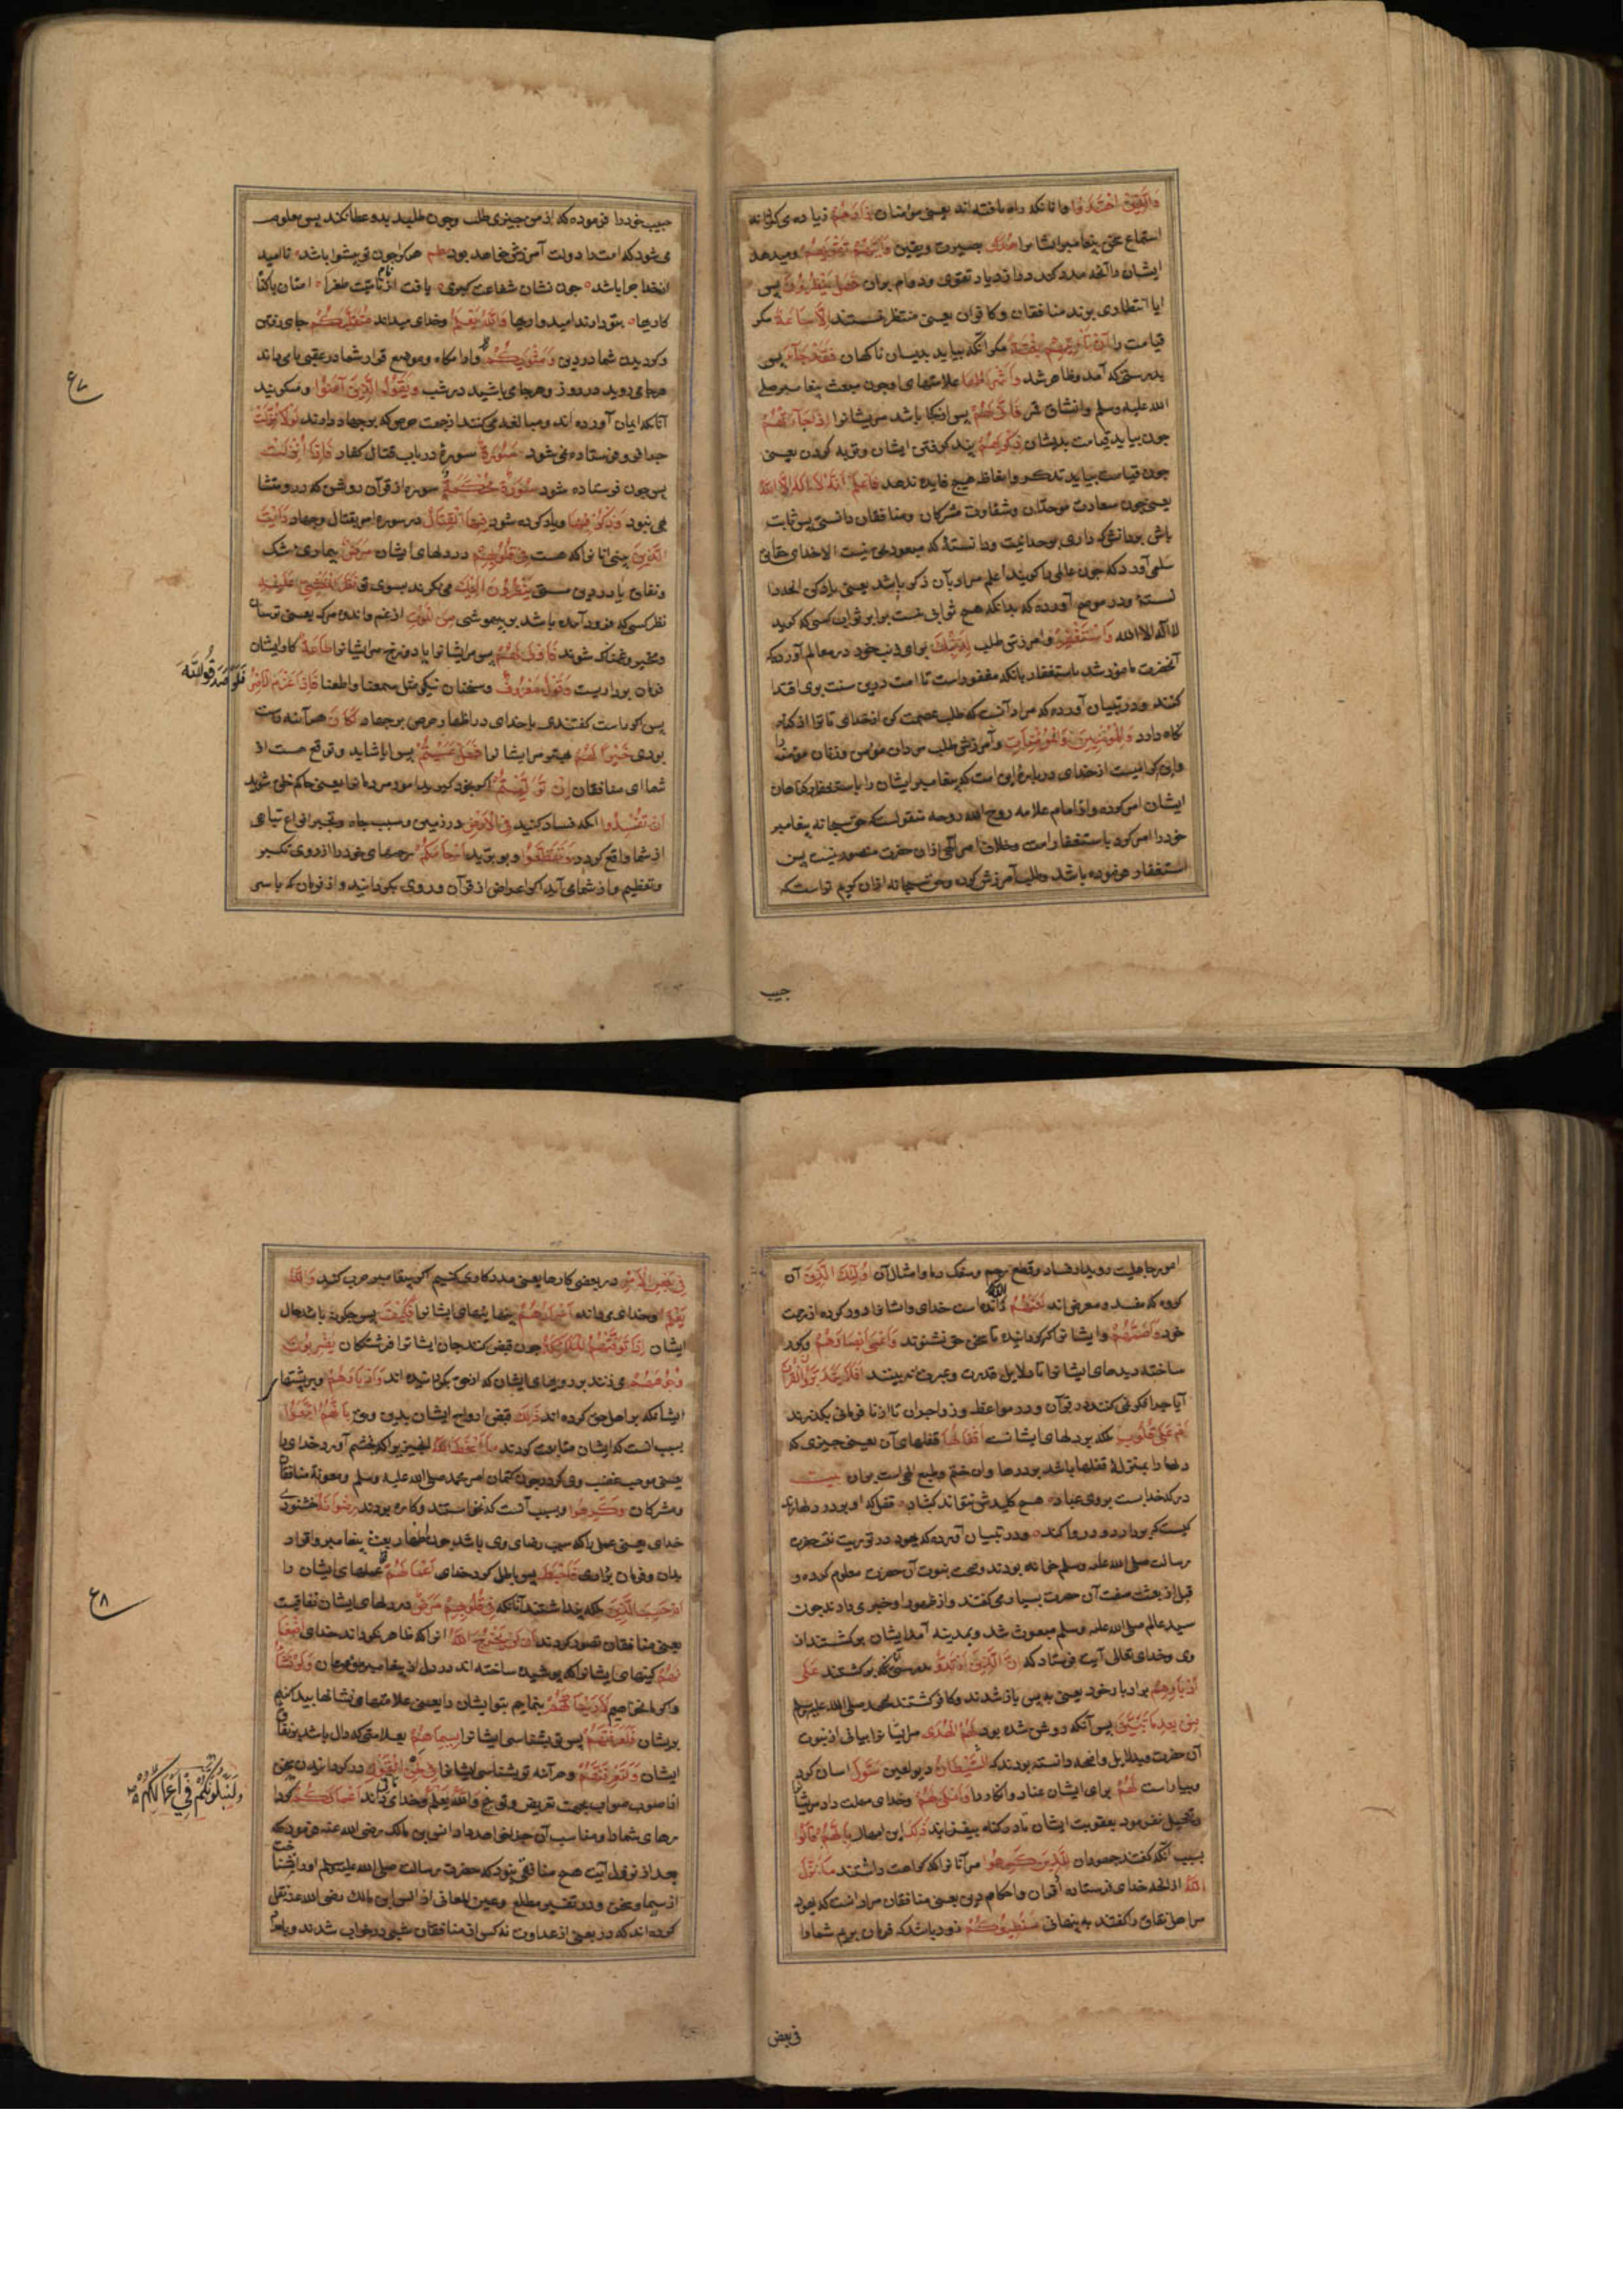 والذین اهتدوا وآنانکه راه یافته‌اند یعنی مؤمنان زادهم زیاده می‌کرداند
استماع سخن پیغامبر ایشانرا هدی بصیرت ویقین وآتیهم تقویهم ومیدهد
ایشان را آنچه مدد کند در ازدیاد تقوی ودوام بران فهل ینظرون پس
ایا انتظاری برند منافقان وکافران یعنی منتظر نیستند الا الساعة مکر
قیامت را ان تأتیهم بغتة مکر آنکه بیاید بدیشان ناکهان فقد جاء پس
بدرستی که آمد وظاهر شد اشراطها علامتهای او چون مبعث پیغامبر صلی
الله علیه وسلم وانشقاق قمر فانی لهم پس از کجا باشد مر ایشانرا اذا جاءتهم
چون بیاید قیامت بدیشان ذکریهم پند کرفتن ایشان وتوبه کردن یعنی
چون قیامت بیاید تذکر واتعاظ هیچ فایده ندهد فاعلم انه لا اله الا الله
یعنی چون سعادت موحدان وشقاوت مشرکان ومنافقان دانستی پس ثابت
باش بر دانشی که داری بوحدانیت ودانستهٔ که معبودی نیست الا خدای حقانی
سلمی آورد که چون عالمی را کویند اعلم مراد بآن ذکر باشد یعنی یاد کن آنچه را
لا اله الا الله واستغفر وآمرزش طلب لذنبک برای ذنب خود در معالم آورده که
آنحضرت مامور شد باستغفار بانکه مغفور است تا امت درین سنت بوی اقتدا
کنند ودر تبیان آورده که مراد آنست که طلب عصمت کن از خدای تا ترا از کناه
نکاه دارد وللمؤمنین والمؤمنات وآمرزش طلب مردان مؤمن وزنان مؤمنه را
واین کرامیست از خدای درباره این امت که پیغامبر ایشان را باستغفار کناهان
ایشان امر کرده واز امام علامه روح الله روحه منقولست که حق سبحانه پیغامبر
خود را امر کرد باستغفار امت وخلاف امر الهی از ان حضرت متصور نیست پس
استغفار فرموده باشد وطلب آمرزش کرده وحق سبحانه ازان کریم تر است که
حبیب
حبیب خود را فرموده که از من چیزی طلب وچون طلبد بدو عطا نکند پس معلوم
می‌شود که امت را دولت آمرزش خواهد بود نظم هر کرا چون تو پیشوا باشد نا امید
از خدا چرا باشد چون نشان شفاعت کبری یافت از نام نامیت طغرا امتان با کناه
کاریها بتو دارند امیدواریها والله یعلم وخدای میداند متقلبکم جای رفتن
وکردیدن شما در دین ومثویکم وارامکاه وموضع قرار شما در عقبی یا می‌داند
هرجا می‌روید در روز وهرجا می‌باشید در شب ویقول الذین آمنوا ومیکویند
آنانکه ایمان آورده‌اند ومبالغه می‌کنند از جهت حرصی که بر جهاد دارند لولا نزلت
چرا فرو فرستاده نمی‌شود سورة سورهٔ در باب قتال کفار فاذا انزلت
پس چون فرستاده شود سورة محکمة سوره از قرآن روشن که درو متشابه
نبود وذکر فیها ویاد کرده شود فیها القتال در سوره امر بقتال وجهاد رأیت
الذین بینی آنانرا که هست فی قلوبهم در دلهای ایشان مرض بیماری شک
ونفاق یا در دین سستی ینظرون الیک می‌نکرند بسوی تو نظر المغشی علیه
نظر کسی که فرود آمده باشد بر بیهوشی من الموت از غم واندوه مرک یعنی ترسان
ومتحیر وغمناک شوند فاولی لهم پس مر ایشانرا یا دوزخ مر ایشانرا طاعة کار ایشان
فرمان برداریست وقول معروف وسخنان نیکو مثل سمعنا واطعنا فاذا عزم الامر
فلو صدقوا الله
پس اکر راست کفتندی با خدای در اظهار حرص بر جهاد لکان هر آینه راست
بودی خیرا لهم بهتر مر ایشانرا فهل عسیتم پس ایا شاید وتوقع هست از
شما ای منافقان ان تولیتم اکر بخود کیرید امور مردمانرا یعنی حاکم خلق شوید
ان تفسدوا انکه فساد کنید فی الارض در زمین وسبب جاه وتجبر انواع تباهی
از شما واقع کردد وتقطعوا وببرید ارحامکم رحمهای خود را از روی تکبر
وتعظیم واز شما می‌آید اکر اعراض از قرآن وروی بکردانید واز فرمان که باسر
۶۷
امور جاهلیت روید از فساد وقطع رحم وسفک دماء وامثال آن اولئک الذین آن
کروه که مفسد ومعرض‌اند لعنهم الله رانده است خدای ایشانرا ودور کرده از رحمت
خود فاصمهم وایشانرا کر کردانیده تا سخن حق نشنوند واعمی ابصارهم وکور
ساخته دیدهای ایشانرا تا دلایل قدرت وعبرت نه بینند افلا یتدبرون القرآن
آیا چرا فکر نمی‌کنند در قرآن ودر مواعظ وزواجر ان تا از نافرمانی بکذرند
ام علی قلوب بلکه بر دلهای ایشانست اقفالها قفلهای آن یعنی چیزی که
دلها را بمنزلهٔ قفلها باشد بر درها وان ختم وطبع الهی است بران بیت
در که خدا بست بروی عباد هیچ کلیدش نتواند کشاد قفل که او بر در دلها زند
کیست که بردارد ودر وا کند ودر تبیان آورده که یهود در توریت نعت حضرت
رسالت صلی الله علیه وسلم خوانده بودند وصحت نبوت آن حضرت معلوم کرده و
قبل از بعثت صفت آن حضرت بسیار می‌کفتند واز ظهور او خبر می‌دادند چون
سید عالم صلی الله علیه وسلم مبعوث شد وبمدینه آمد ایشان برکشتند از
وی وخدای تعالی آیت فرستاد که ان الذین ارتدوا بدرستی آنانکه برکشتند علی
ادبارهم بر ادبار خود یعنی به پس باز شدند وکافر کشتند بمحمد صلی الله علیه وسلم
من بعد ما تبین پس آنکه روشن شده بود لهم الهدی مر ایشانرا بیانی از نبوت
آن حضرت وبدلایل واضحه دانسته بودند که الشیطان دیو لعین سول اسان کرد
وبیاراست لهم برای ایشان عناد وانکار را واملی لهم وخدای مهلت داد مر ایشانرا
وتعجیل نفرمود بعقوبت ایشان تا در کناه بیفزایند ذلک این امهال بانهم قالوا
بسبب آنکه کفتند جهودان للذین کرهوا مر آنانرا که کراهت داشتند ما نزل
الله از آنچه خدای فرستاده از قرآن واحکام دین یعنی منافقان مراد انست که یهود
مر اهل نفاق را کفتند به پنهانی سنطیعکم زود باشد که فرمان بریم شما را
فی بعض
فی بعض الامر در بعضی کارها یعنی مددکاری کنیم اکر پیغامبر حرب کند والله
یعلم وخدای می‌داند اسرارهم پنهانیهای ایشانرا فکیف پس چکونه باشد حال
ایشان اذا توفتهم الملائکة چون قبض کنند جان ایشانرا فرشتکان یضربون
وجوههم می‌زنند بر رویهای ایشان که از حق بکردانیده‌اند وادبارهم وبر پشتهای
ایشانکه بر اهل حق کرده‌اند ذلک قبض ارواح ایشان بدین وجه بانهم اتبعوا
بسبب انست که ایشان متابعت کردند ما اسخط الله انچیزی را که بخشم آورد خدای را
یعنی موجب غضب وی کردد چون کتمان امر محمد صلی الله علیه وسلم ومعونة منافقان
ومشرکان وکرهوا وبسبب آنست که نخواستند وکاره بودند رضوانه خشنودی
خدای یعنی عملی را که سبب رضای وی باشد چون اظهار بعثت پیغامبر واقرار
بدان وفرمان برداری فاحبط پس باطل کرد خدای اعمالهم عملهای ایشان را
ام حسب الذین بلکه پنداشتند آنانکه فی قلوبهم مرض در دلهای ایشان نفاقیست
یعنی منافقان تصور کردند ان لن یخرج الله انرا که ظاهر نکرداند خدای اضغانهم
کینهای ایشانرا که پوشیده ساخته‌اند در دل از پیغامبر ومؤمنان ولو نشاء
واکر ما خواهیم لاریناکهم بنماییم بتو ایشان را یعنی علامتها ونشانها پیدا کنیم
بر ایشان فلعرفتهم پس تو بشناسی ایشانرا بسیماهم بعلامتی که دال باشد بر نفاق
ایشان ولتعرفنهم وهر آینه تو بشناسی ایشانرا فی لحن القول در کردانیدن سخن
از صوب صواب بجهت تعریض وتوریه والله یعلم وخدای می‌داند اعمالکم کردارهای
ولنبلونکم فی اعمالکم
شما را ومناسب آن جزا خواهد داد انس بن مالک رضی الله عنه فرموده که
بعد از نزول آیت هیچ منافقی نبود که حضرت رسالت صلی الله علیه وسلم او را نشناخت
از سیما وسخن ودر تفسیر مطلع وعین المعانی از انس بن مالک رضی الله عنه نقل
کرده‌اند که در بعضی از غزوات نه کس از منافقان شبی در خواب شدند وبامداد
۶۸